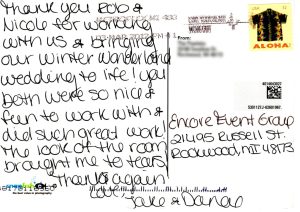 Thank you Rob &
Nicole for working
with us & bringing
our winter wonderland
wedding to life! you
both were so nice &
fun to work with &
did such great work!
The look of the room
brought me to tears!
Thanks again!
Love, Jake & Danae
ALOHA
Encore Event Group
21495 Russell St.
Rockwood, MI 48173